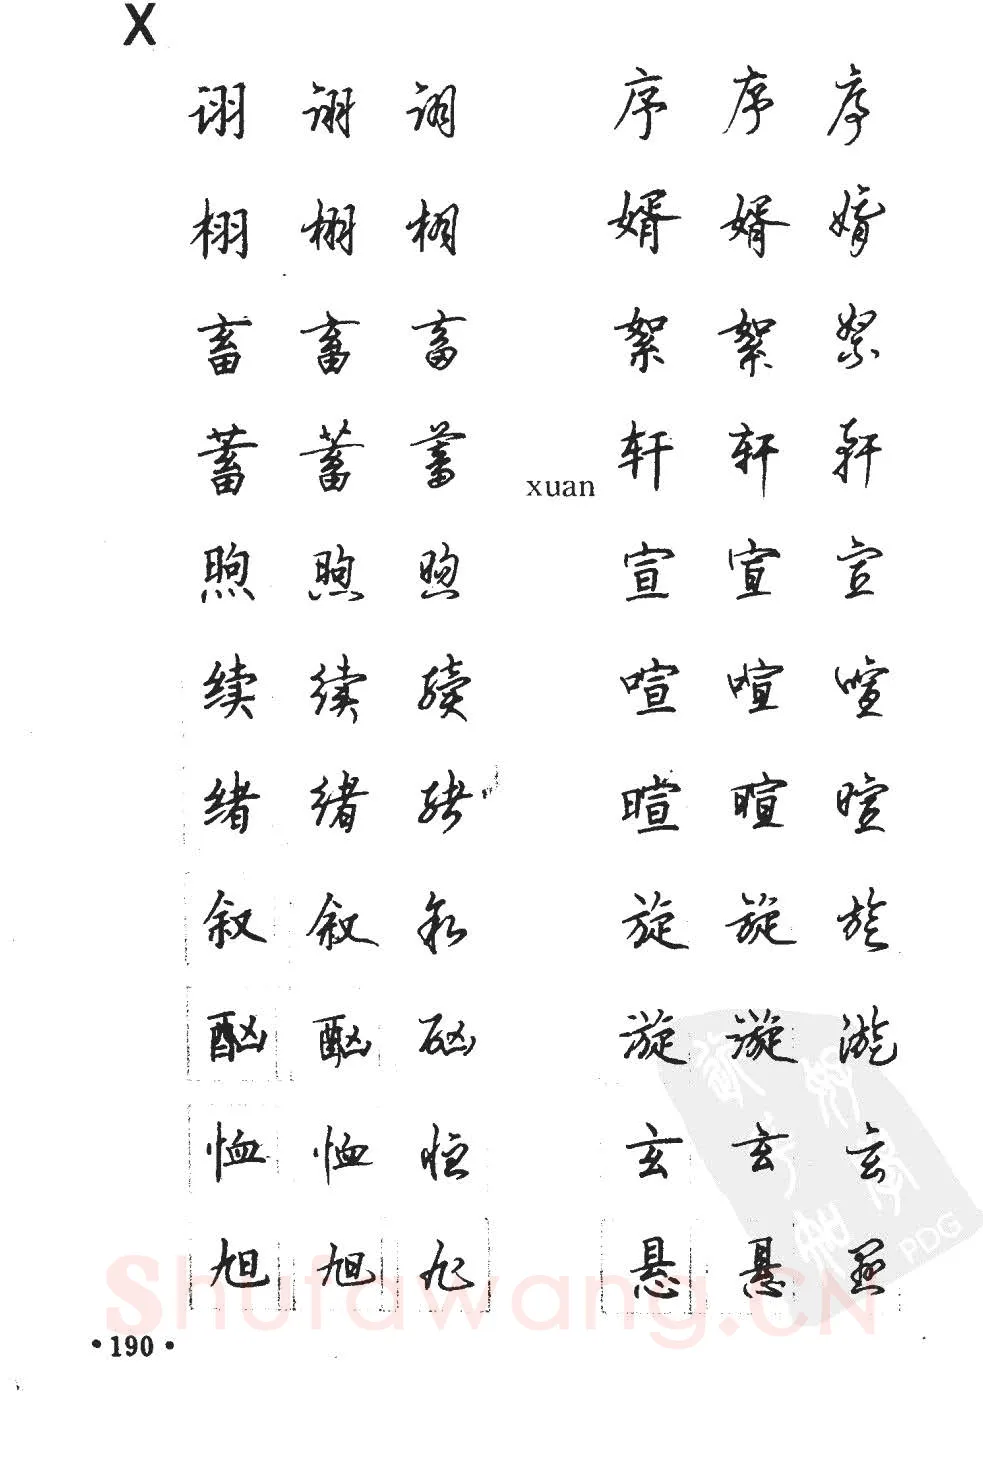 X
诩 诩 诩 序 序 序
栩 栩 栩 婿 婿 婿
畜 畜 畜 絮 絮 絮
蓄 蓄 蓄 xuan 轩 轩 轩
煦 煦 煦 宣 宣 宣
续 续 续 喧 喧 喧
绪 绪 绪 暄 暄 暄
叙 叙 叙 旋 旋 旋
酗 酗 酗 漩 漩 漩
恤 恤 恤 玄 玄 玄
旭 旭 旭 悬 悬 悬
Shufawang.CN
PDG
·190·